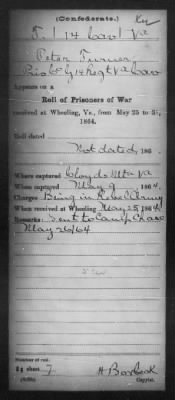 (Confederate.)
T. 14 Cav. Va
Peter Turner
Co. G, 14 Reg't Va Cav
Appears on a
Roll of Prisoners of War
received at Wheeling, Va., from May 25 to 31, 1864.
Roll dated
Not dated, 186 .
Where captured Cloyds Mt Va
When captured May 9, 1864.
Charges Being in Rebel Army
When received at Wheeling May 25, 1864.
Remarks: Sent to Camp Chase
May 26/64
Number of roll:
sheet 7
Copyist.